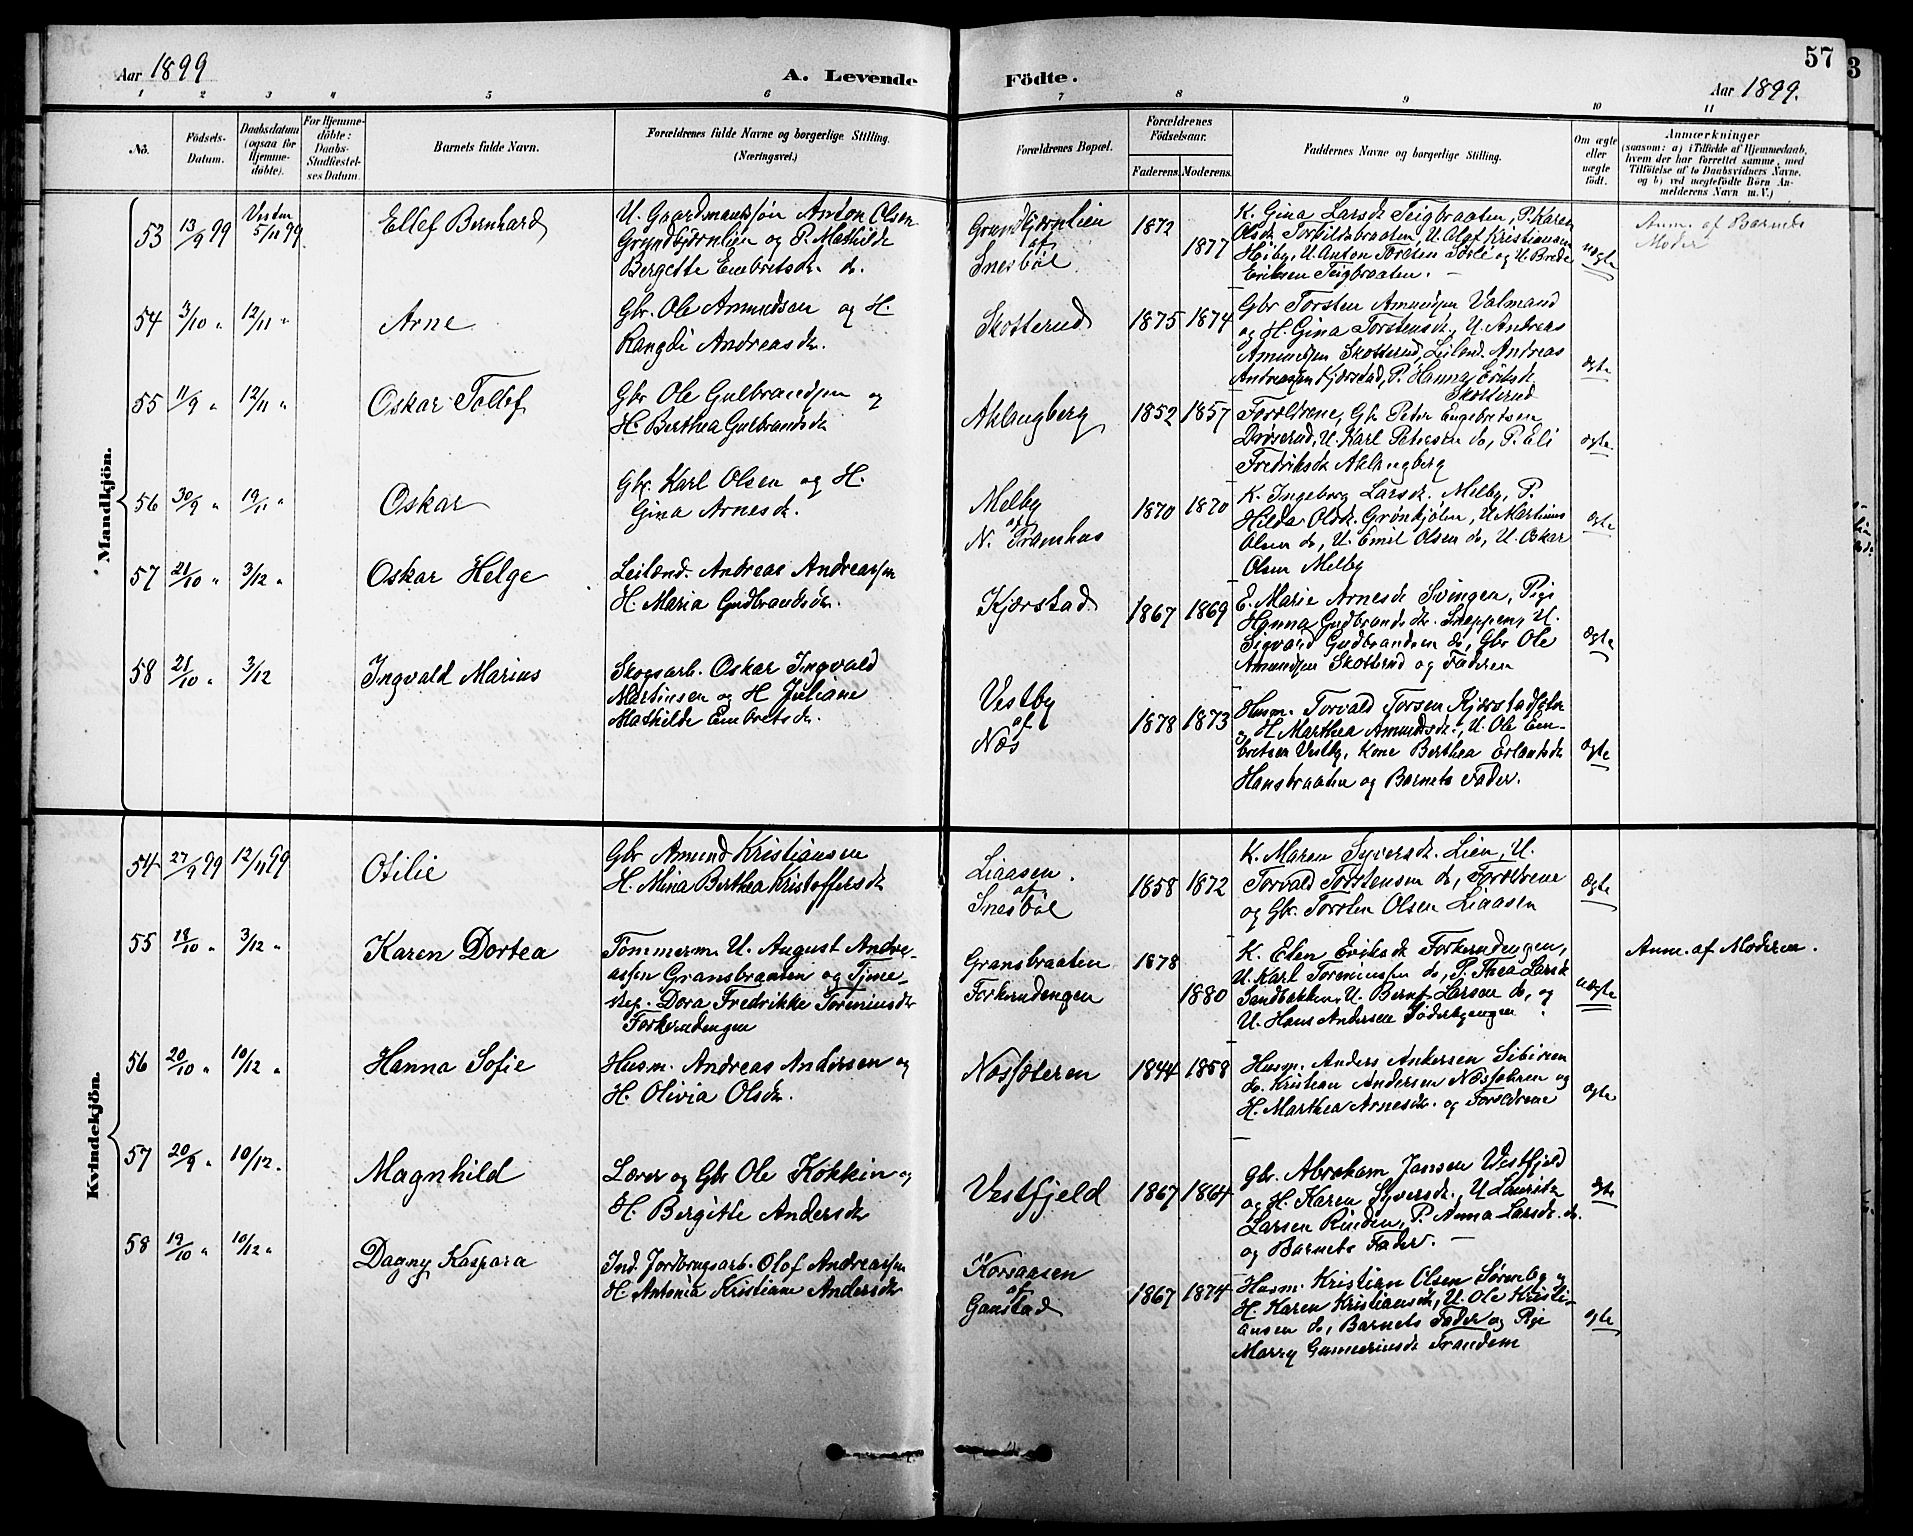 57
3
Aar 1899
A. Levende Födte.
Aar 1899.
1 2 3 4 5 6 7 8 9 10 11
No.
Födsels-
Datum.
Daabsdatum
(ogsaa for
Hjemme-
döbte).
For Hjemme-
döbte:
Daabs-
Stadfæstel-
ses Datum.
Barnets fulde Navn.
Forældrenes fulde Navne og borgerlige Stilling.
(Næringsvei.)
Forældrenes Bopæl.
Forældrenes
Födselsaar.
Faderens. Moderens.
Faddernes Navne og borgerlige Stilling.
Om ægte
eller
uægte
født.
Anmærkninger
(saasom: a) i Tilfælde af Hjemmedaab,
hvem der har forrettet samme, med
Tilföielse af to Daabsvidners Navne,
og b) ved uægtefödte Börn An-
melderens Navn m. V.)
Mandkjön.
53 13/9 99
Vestm
5/11 99
Ellef Bernhard
U. Gaardmandssøn Anton Olsen
Gryndbjørnlien og P. Mathilde
Bergette Embretsdr. do.
Gryndbjørnlien
af
Snesbøl
1872 1877
K. Gina Larsdr. Teigbraaten, P. Karen
Olsdr. Torkildsbraaten, U. Olaf Kristiansen
Høiby, U. Anton Torsten Sorli og U. Brede
Eriksen Teigbraaten. —
uægte
Anm. af Barnets
Moder
54 3/10 " 12/11 "
Arne
Gbr. Ole Amundsen og H.
Rangdi Andreasdr.
Skotterud
1875 1874
Gbr Torsten Amundsen Valmand
og H. Gina Torstensdr., U. Andreas
Amundsen Skotterud, Leilend. Andreas
Andreassen Kjærstad, P. Hanna Eriksdr
Skotterud
ægte
55 11/9 " 12/11 "
Oskar Tollef
Gbr Ole Gulbrandsen og
H. Berthea Gulbrandsdr
Aklangberg
1852 1857
Forældrene, Gbr Peter Engebretsen
Drøverud, U. Karl Petersen do, P. Eli
Fredriksdr Aklangberg
ægte
56 30/9 " 19/11 "
Oskar
Gbr. Karl Olsen og H.
Gina Arnesdr.
Melby
af
N. Tramhus
1870 1870
K. Ingeborg Larsdr. Melby, P.
Hilda Olsdr. Grønkjølen, U. Martinus
Olsen do, U. Emil Olsen do, U. Oskar
Olsen Melby
ægte
57 21/10 " 3/12 "
Oskar Helge
Leilend. Andreas Andreassen
H. Maria Gudbrandsdr.
Kjærstad
1867 1869
E. Marie Arnesdr Svingen, Pige
Hanna Gudbrandsdr. Sneppen, U.
Sigvard Gudbrandsen do, Gbr Ole
Amundsen Skotterud og Faderen
ægte
58 21/10 " 3/12
Ingvald Marius
Skogsarb. Oskar Ingvald
Martinsen og H Juliane
Mathilde Embretsdr.
Vestby
af
Næs
1878 1873
Husm. Torvald Torsen Kjærstad
og H Marthea Amundsdr., U. Ole Em-
bretsen Vestby, Kone Berthea Erlandsdr
Hansbraaten og Barnets Fader.
ægte
Kvindekjön.
54 27/9 99 12/11 99
Otilie
Gbr Amund Kristiansen
H. Mina Berthea Kristoffersdr
Liaasen.
af
Snesbøl
1858 1872
K. Maren Syversdr. Lien, U.
Torvald Torstensen do, Forældrene
og Gbr. Torsten Olsen Liaasen
ægte
55 18/10 " 3/12 "
Karen Dortea
Tømmerm. U. August Andre-
assen Gransbraaten og Tjene-
step. Dora Fredrikke Toreniusdr
Forkerudengen
Gransbraaten
Forkerudengen
1878 1880
K. Elen Eriksdr Forkerudengen,
U. Karl Toreniussen do, P. Thea Larsdr
Sandbakken, U. Bernt Larsen do, og
U. Hans Andersen
uægte
Anm. af Moderen.
56 20/10 " 10/12 "
Hanna Sofie
Husm. Andreas Andersen og
H. Olivia Olsdr.
Næssæteren
1844 1858
Husm. Anders Ankersen Sibirien
do. Kristian Andersen Næssæteren og
H. Marthea Arnesdr. og Forældrene
ægte
57 20/9 " 10/12 "
Magnhild
Lærer og Gbr Ole Kokkin og
H. Bergitte Andersdr
Vestfjeld
1867 1864
Gbr. Abraham Jansen Vestfjeld
og H. Karen Syversdr., U. Lauritz
Larsen Rinden, P. Anna Larsdr. do.
og Barnets Fader. —
ægte
58 19/10 " 10/12 "
Dagny Kaspara
Ind. Jordbrugsarb. Olof Andreassen
H. Antonia Kristiane Andersdr
Korsaasen
af
Gaustad
1867 1874
Husm. Kristian Olsen Sørenby og
H. Karen Kristiansdr, U. Ole Kristi-
ansen do, Barnets Fader og Pige
Marry Gunneriusdr Trandem
ægte